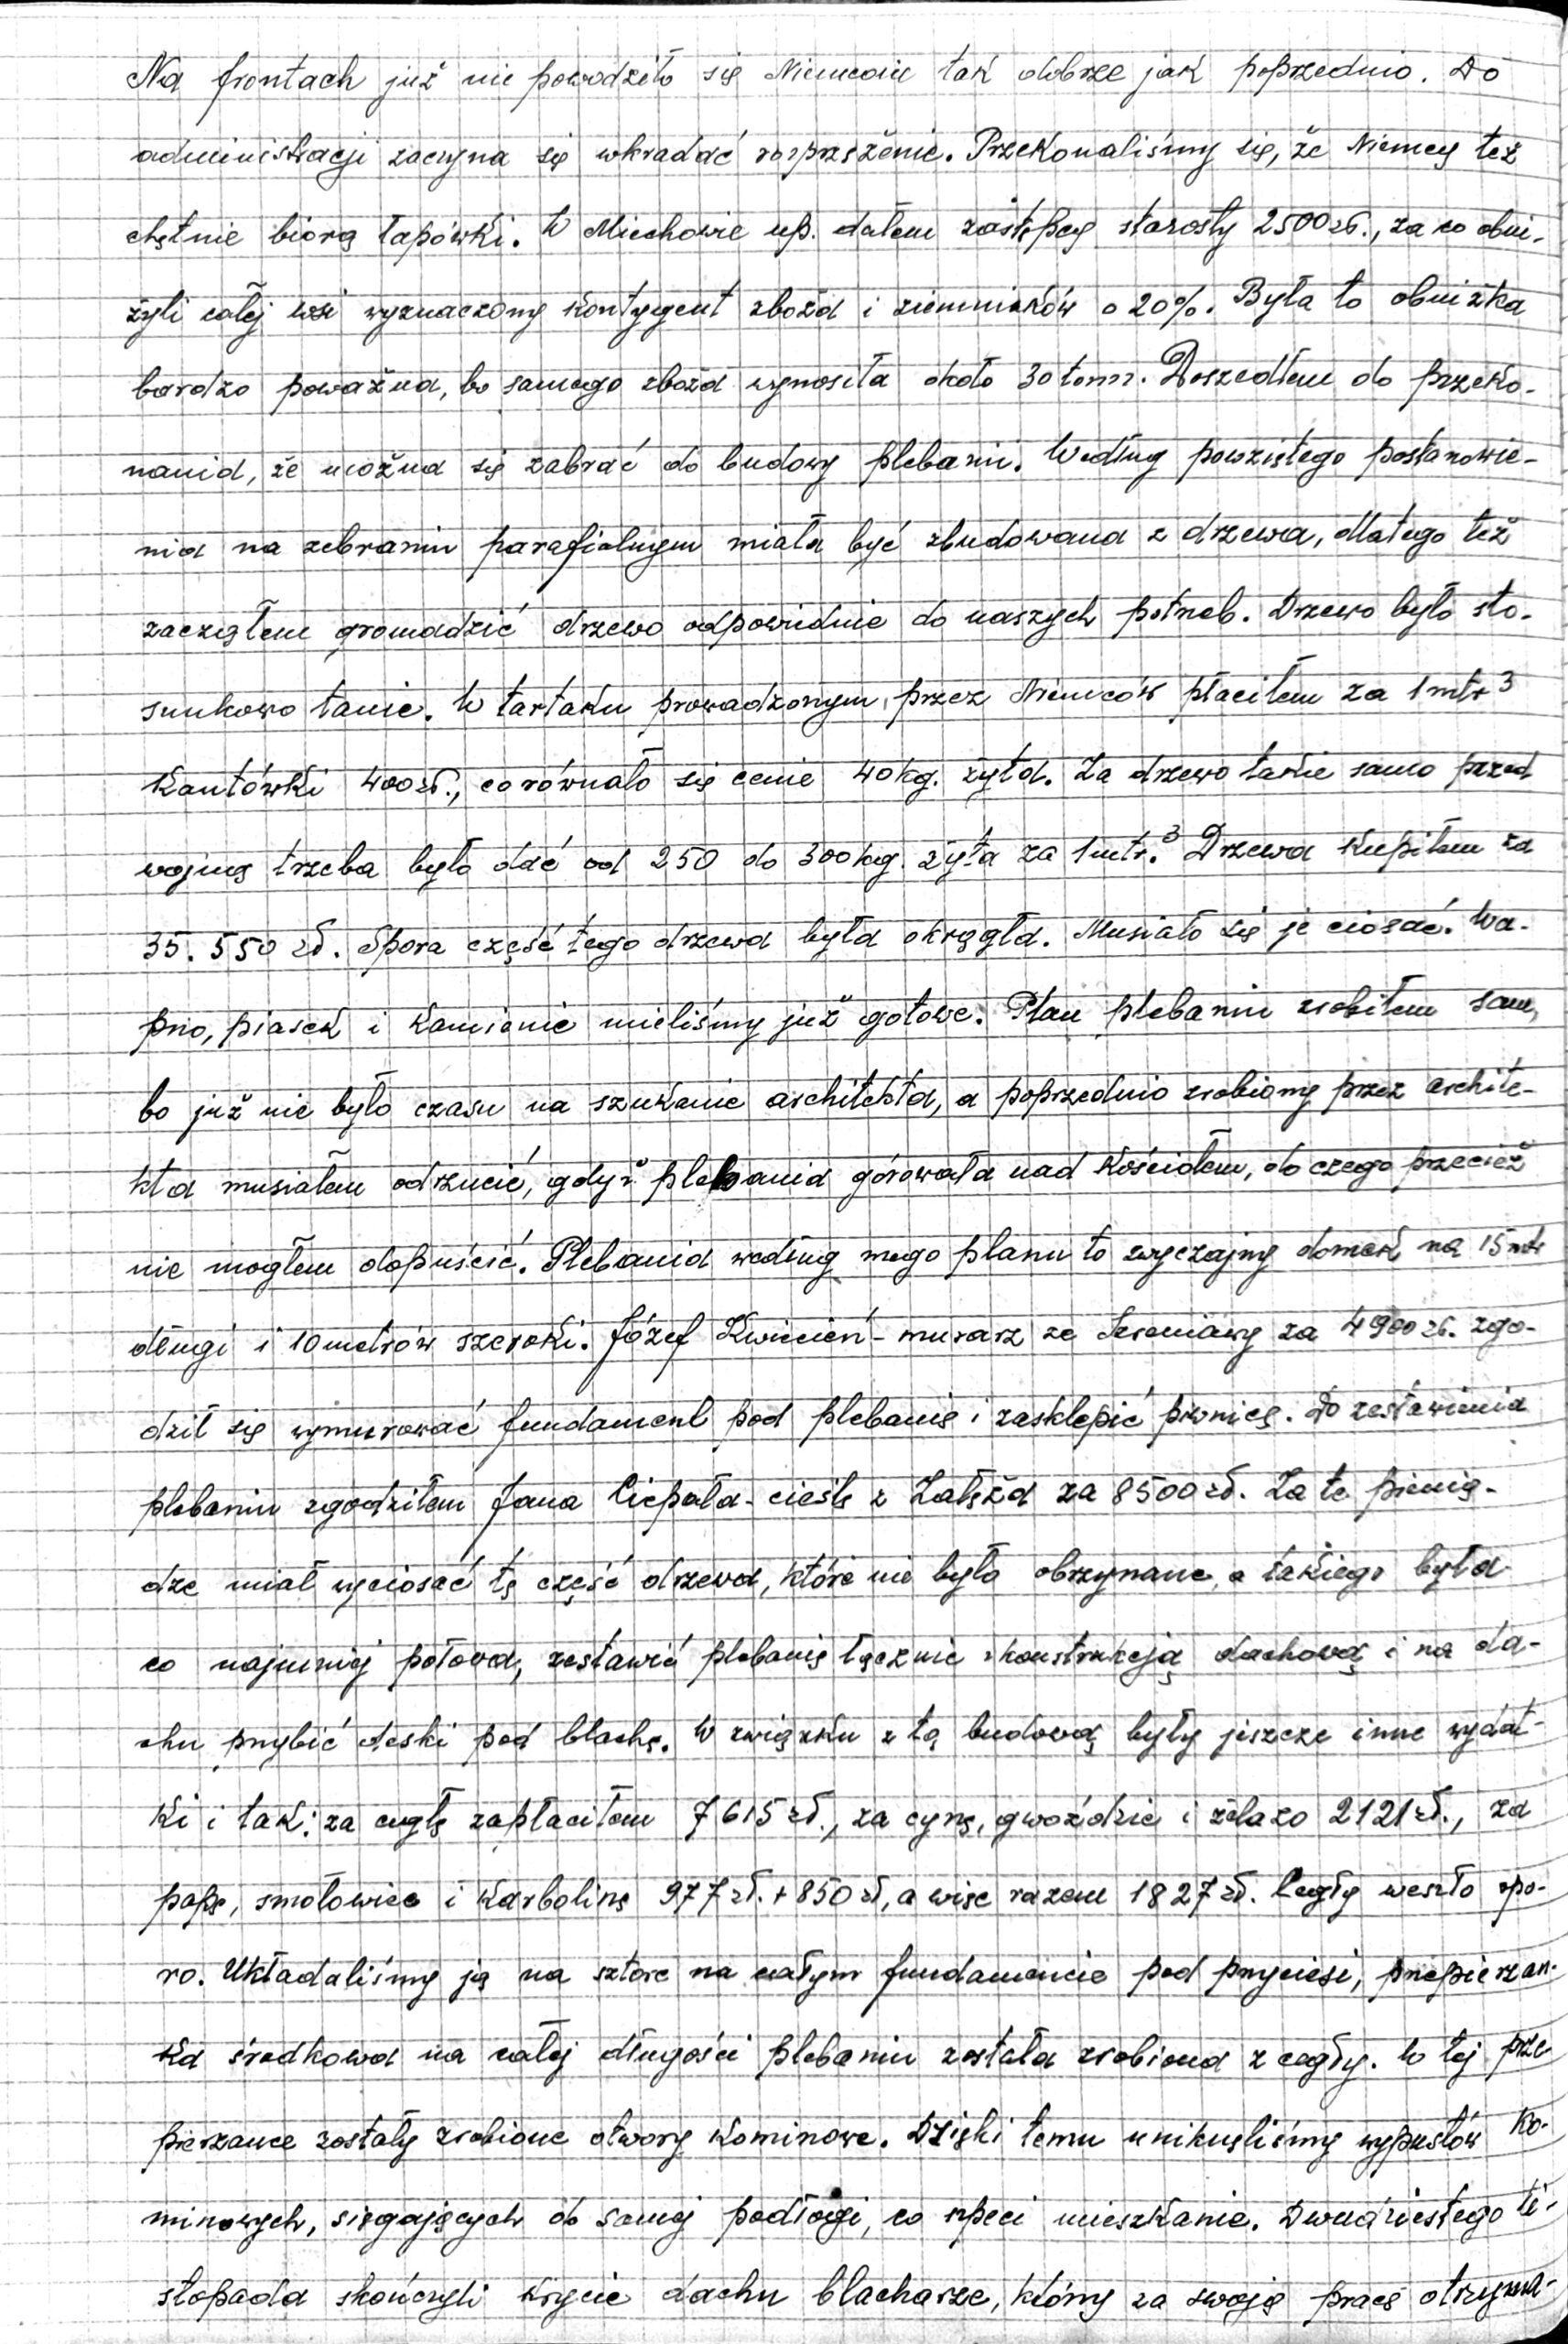 Na frontach już nie powodziło się Niemcom tak dobrze jak poprzednio. Do
administracji zaczyna się wkradać rozprzężenie. Przekonaliśmy się, że Niemcy też
chętnie biorą łapówki. W Miechowie np. dałem zastępcy starosty 2500 zł., za co obni-
żyli całej wsi wyznaczony kontyngent zboża i ziemniaków o 20%. Była to obniżka
bardzo poważna, bo samego zboża wynosiła około 30 tonn. Doszedłem do przeko-
nania, że można się zabrać do budowy plebanii. Według powziętego postanowie-
nia na zebraniu parafialnym miała być zbudowana z drzewa, dlatego też
zacząłem gromadzić drzewo odpowiednie do naszych potrzeb. Drzewo było sto-
sunkowo tanie. W tartaku prowadzonym przez Niemców płaciłem za 1 mtr³
kantówki 400 zł., co równało się cenie 40 kg. żyta. Za drzewo takie samo przed
wojną trzeba było dać od 250 do 300 kg. żyta za 1 mtr.³ Drzewa kupiłem za
35.550 zł. Spora część tego drzewa była okrągła. Musiało się je ciosać. Wa-
pno, piasek i kamienie mieliśmy już gotowe. Plan plebanii zrobiłem sam,
bo już nie było czasu na szukanie architekta, a poprzednio zrobiony przez archite-
kta musiałem odrzucić, gdyż plebania górowała nad kościołem, do czego przecież
nie mogłem dopuścić. Plebania według mego planu to zwyczajny domek na 15 mtr
długi i 10 metrów szeroki. Józef Kwiecień - murarz ze Sreniawy za 4900 zł. zgo-
dził się wymurować fundament pod plebanię i zasklepić piwnicę. Do zestawienia
plebanii zgodziłem Jana Ciepała - cieślę z Załęża za 8500 zł. Za te pienią-
dze miał wyciosać tę część drzewa, które nie było obrzynane, a takiego była
co najmniej połowa, zestawić plebanię łącznie z konstrukcją dachową i na da-
chu przybić deski pod blachę. W związku z tą budową były jeszcze inne wydat-
ki i tak: za cegłę zapłaciłem 7615 zł., za cynę, gwoździe i żelazo 2121 zł., za
papę, smołowiec i karbolinę 977 zł. + 850 zł, a więc razem 1827 zł. Cegły weszło spo-
ro. Układaliśmy ją na sztorc na całym fundamencie pod przyciesi, przepierzan-
ka środkowa na całej długości plebanii została zrobiona z cegły. W tej prze-
pierzance zostały zrobione otwory kominowe. Dzięki temu uniknęliśmy wypustów ko-
minowych, sięgających do samej podłogi, co szpeci mieszkanie. Dwudziestego li-
stopada skończyli krycie dachu blacharze, którzy za swoją pracę otrzyma-